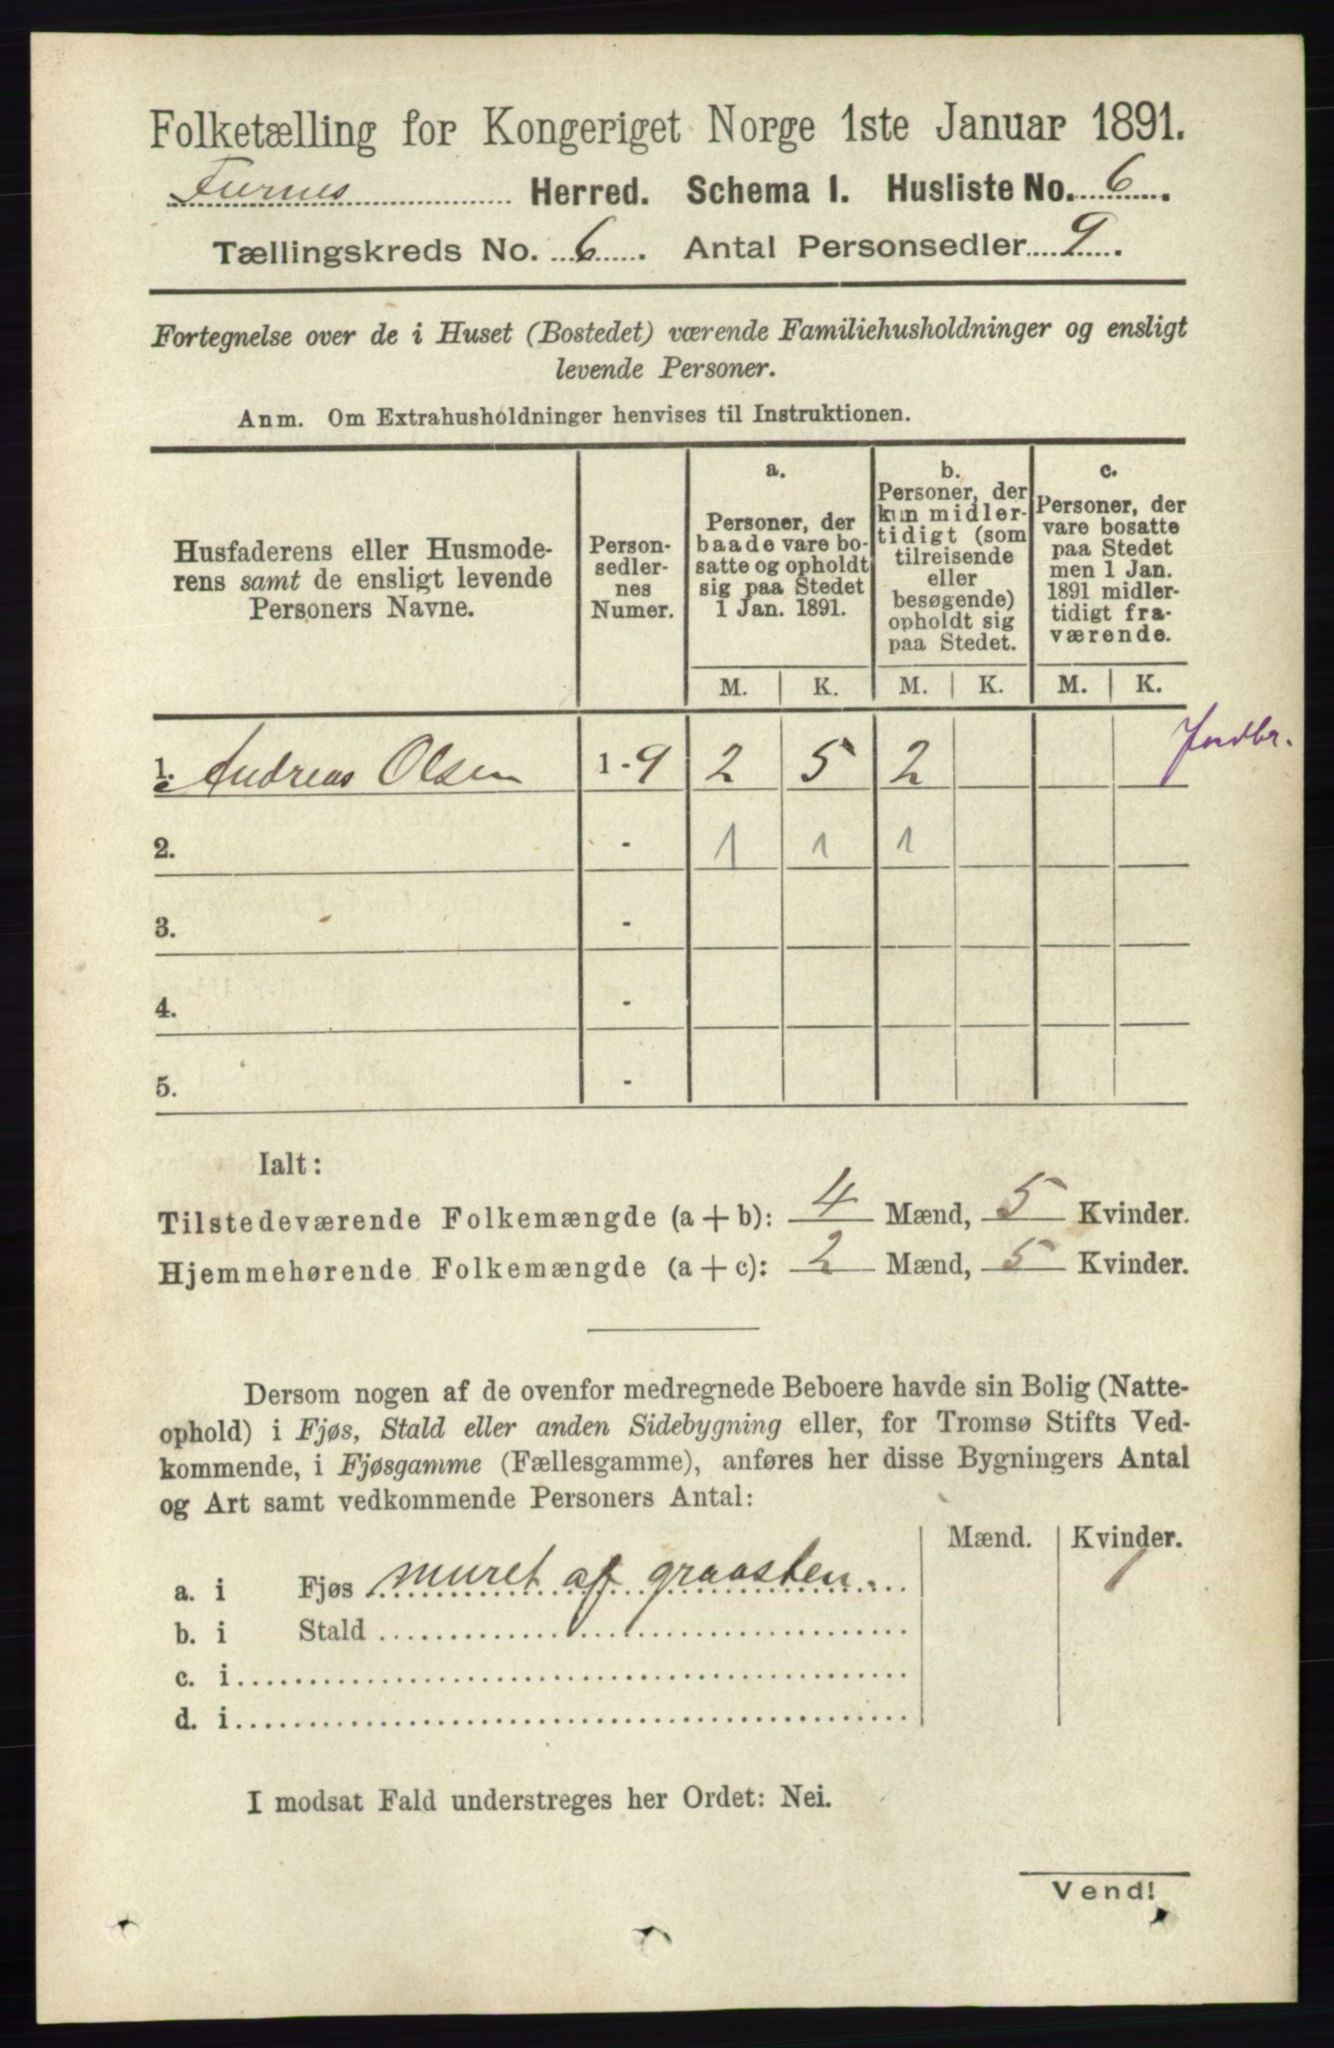 Folketælling for Kongeriget Norge 1ste Januar 1891.
Furnes Herred. Schema I. Husliste No. 6.
Tællingskreds No. 6. Antal Personsedler 9.
Fortegnelse over de i Huset (Bostedet) værende Familiehusholdninger og ensligt
levende Personer.
Anm. Om Extrahusholdninger henvises til Instruktionen.
Husfaderens eller Husmode-
rens samt de ensligt levende
Personers Navne.
Person-
sedler-
nes
Numer.
a.
Personer, der
baade vare bo-
satte og opholdt
sig paa Stedet
1 Jan. 1891.
b.
Personer, der
kun midler-
tidigt (som
tilreisende
eller
besøgende)
opholdt sig
paa Stedet.
c.
Personer, der
vare bosatte
paa Stedet
men 1 Jan.
1891 midler-
tidigt fra-
værende.
M. K. M. K. M. K.
1. Andreas Olsen 1-9 2 5 2 Jordbr.
2. - 1 1 1
3. -
4. -
5. -
Ialt:
Tilstedeværende Folkemængde (a+b): 4 Mænd, 5 Kvinder.
Hjemmehørende Folkemængde (a+c): 2 Mænd, 5 Kvinder.
Dersom nogen af de ovenfor medregnede Beboere havde sin Bolig (Natte-
ophold) i Fjøs, Stald eller anden Sidebygning eller, for Tromsø Stifts Ved-
kommende, i Fjøsgamme (Fællesgamme), anføres her disse Bygningers Antal
og Art samt vedkommende Personers Antal:
Mænd. Kvinder.
a. i Fjøs muret af graasten. 1
b. i Stald
c. i
d. i
I modsat Fald understreges her Ordet: Nei.
Vend!